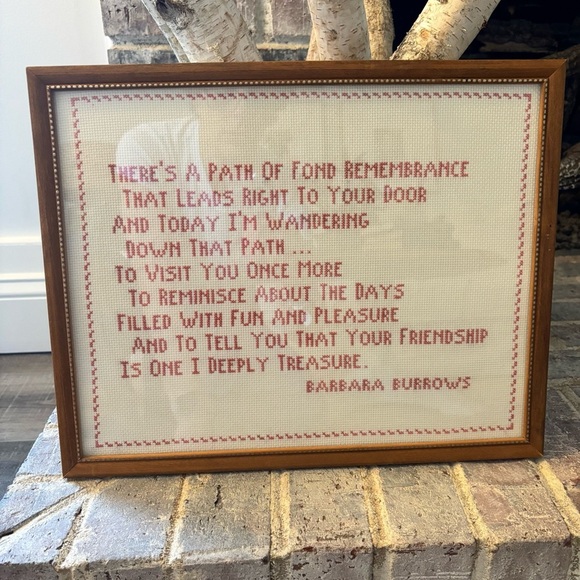 There's A Path Of Fond Remembrance
That Leads Right To Your Door
And Today I'm Wandering
Down That Path ...
To Visit You Once More
To Reminisce About The Days
Filled With Fun And Pleasure
And To Tell You That Your Friendship
Is One I Deeply Treasure.
Barbara Burrows